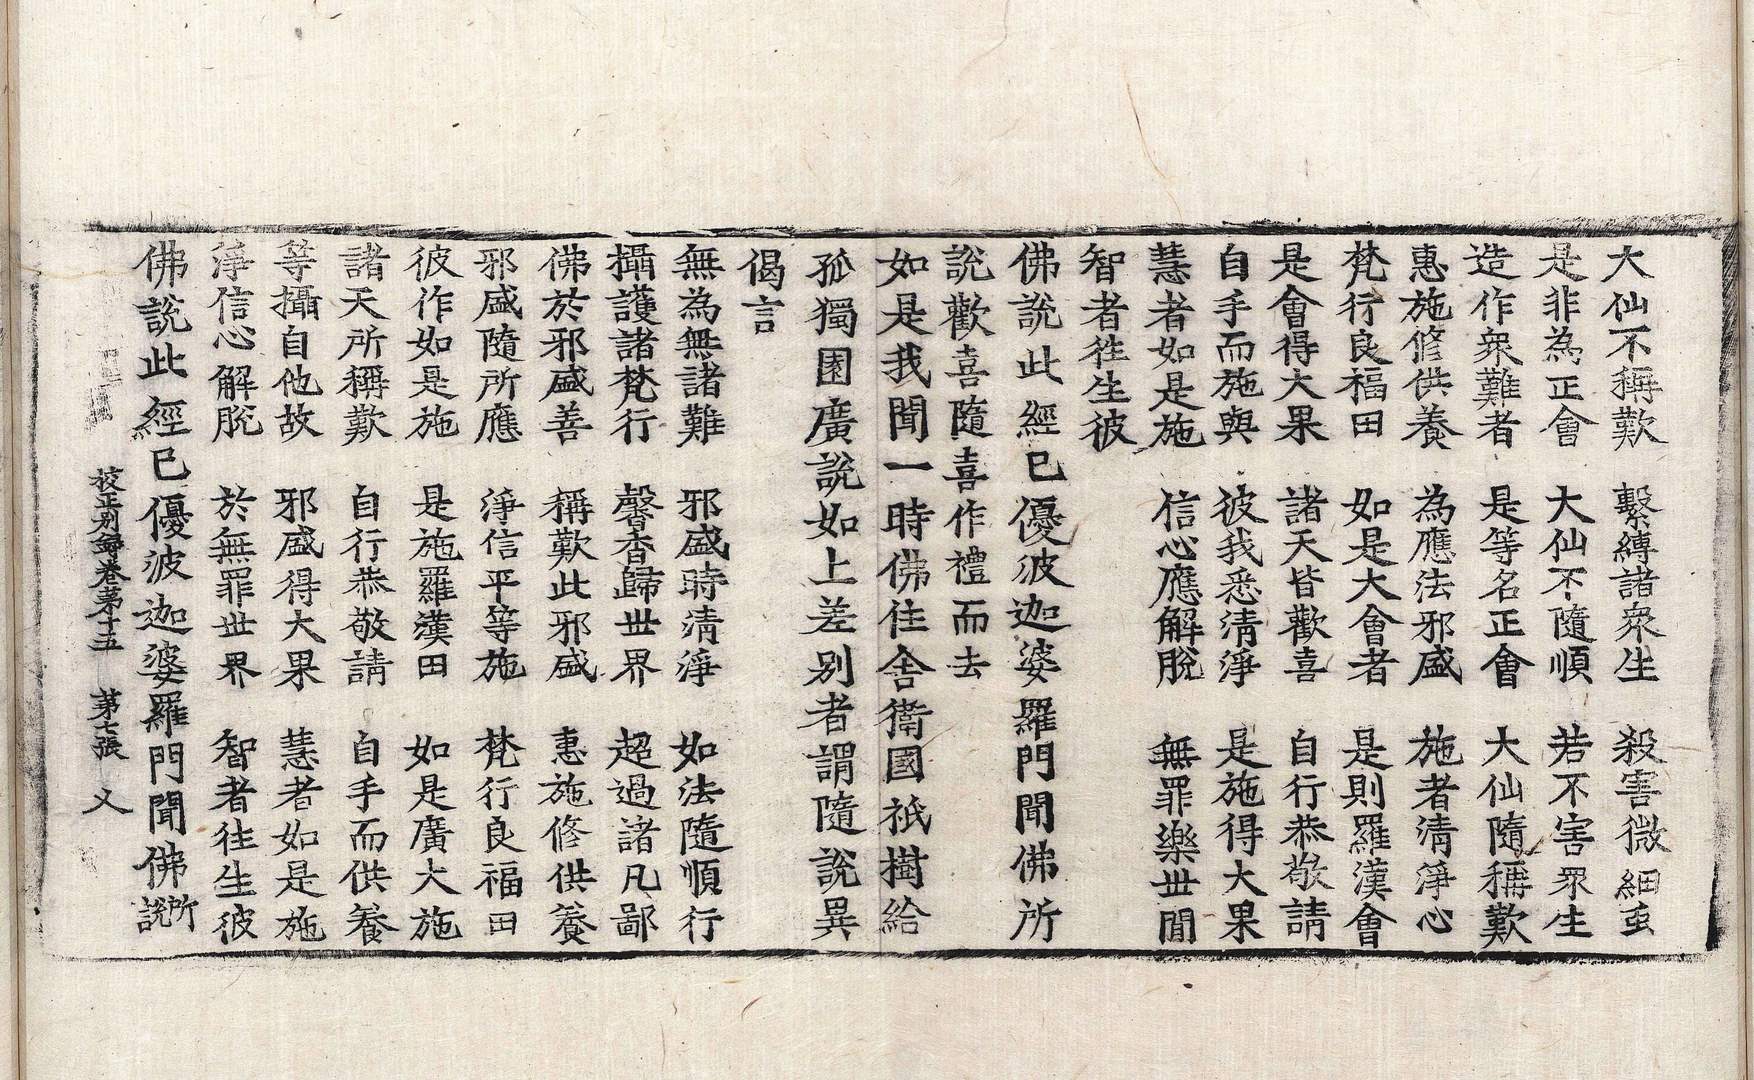 大仙不稱歎　繫縛諸衆生　殺害微細虫
是非為正會　大仙不隨順　若不害衆生
造作衆難者　是等名正會　大仙隨稱歎
惠施修供養　為應法邪盛　施者清淨心
梵行良福田　如是大會者　是則羅漢會
是會得大果　諸天皆歡喜　自行恭敬請
自手而施與　彼我悉清淨　是施得大果
慧者如是施　信心應解脫　無罪樂世間
智者往生彼
佛說此經已優波迦婆羅門聞佛所
說歡喜隨喜作禮而去
如是我聞一時佛住舍衛國祇樹給
孤獨園廣說如上差別者謂隨說異
偈言
無為無諸難　邪盛時清淨　如法隨順行
攝護諸梵行　馨香歸世界　超過諸凡鄙
佛於邪盛善　稱歎此邪盛　惠施修供養
邪盛隨所應　淨信平等施　梵行良福田
彼作如是施　是施羅漢田　如是廣大施
諸天所稱歎　自行恭敬請　自手而供養
等攝自他故　邪盛得大果　慧者如是施
淨信心解脫　於無罪世界　智者往生彼
佛說此經已優波迦婆羅門聞佛所說
校正別錄卷第十五　第七張　乂